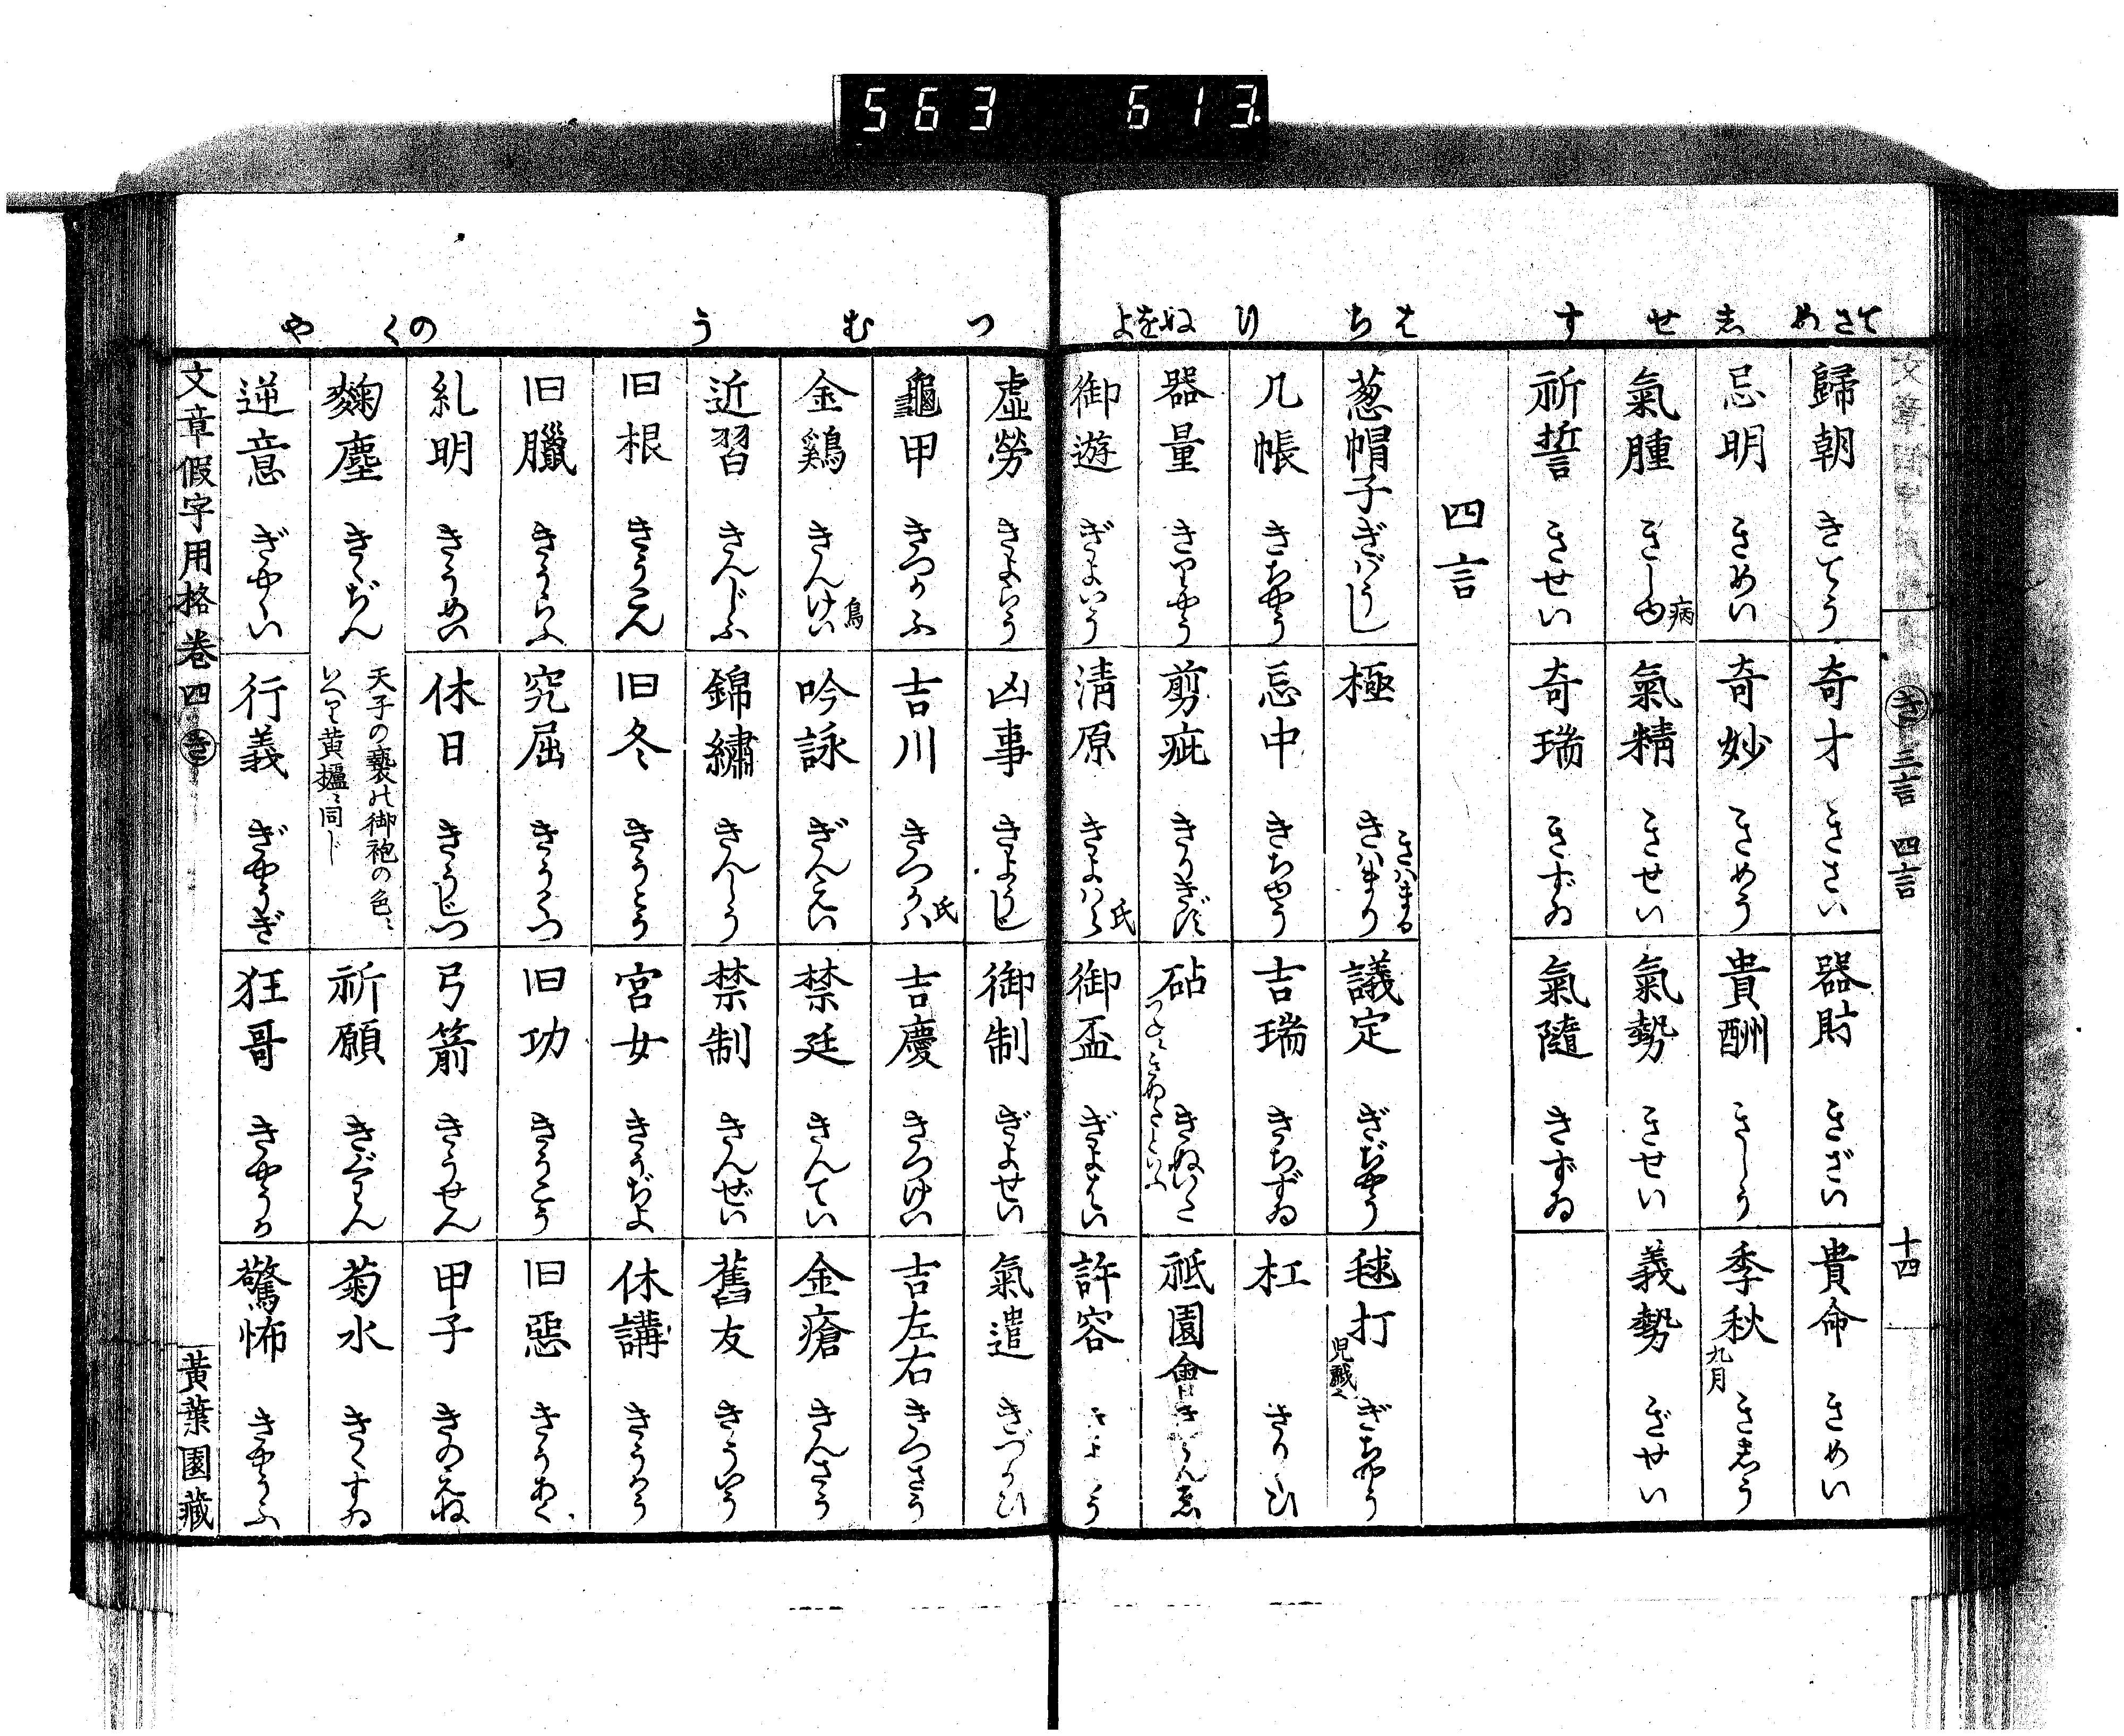 563 613
てさ め し せ す
はち り ぬをよ
文章
き 三言 四言
十四
歸朝 きてう
奇才 きさい
器財 きざい
貴命 きめい
忌明 きめい
奇妙 きめう
貴酬 きしう
季秋 九月 きしう
氣腫 病 きしゆ
氣精 きせい
氣勢 きせい
義勢 ぎせい
祈誓 きせい
奇瑞 きずゐ
氣隨 きずゐ
四言
葱帽子 ぎばうし
極 きはまり きはまる
議定 ぎぢやう
毬打 児戯 ぎちやう
几帳 きちやう
忌中 きちやう
吉瑞 きちずゐ
杠
器量 きりやう
剪疵 きりきず
砧 きぬいた
祇園會 ぎをんゑ
御遊 ぎよいう
淸原 氏 きよはら
御盃 ぎよはい
許容 きよう
つ む う のく や
虚勞 きよらう
凶事 きようじ
御制 ぎよせい
氣遣 きづかひ
龜甲 きつかふ
吉川 氏 きつかは
吉慶 きつけい
吉左右 きつさう
金鷄 鳥 きんけい
吟詠 ぎんえい
禁廷 きんてい
金瘡 きんさう
近習 きんじふ
錦繡 きんしう
禁制 きんぜい
舊友 きういう
旧根 きうこん
旧冬 きうとう
宮女 きうぢよ
休講 きうかう
旧臘 きうらふ
究屈 きうくつ
旧功 きうこう
旧惡 きうあく
糺明 きうめい
休日 きうじつ
弓箭 きうせん
甲子 きのえね
麴塵 きくぢん 天子の褻の御袍の色
祈願 きぐわん
菊水 きくすゐ
逆意 ぎやくい
行義 ぎやうぎ
狂哥 きやうか
驚怖 きやうふ
文章假字用格 卷四 き
黃葉園藏